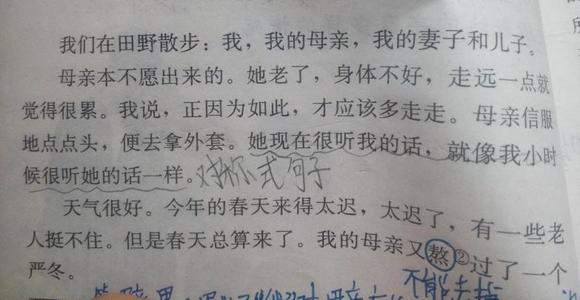 我们在田野散步：我，我的母亲，我的妻子和儿子。
母亲本不愿出来的。她老了，身体不好，走远一点就
觉得很累。我说，正因为如此，才应该多走走。母亲信服
地点点头，便去拿外套。她现在很听我的话，就像我小时
候很听她的话一样。对称式句子
天气很好。今年的春天来得太迟，太迟了，有一些老
人挺不住。但是春天总算来了。我的母亲又熬②过了一个
严冬。